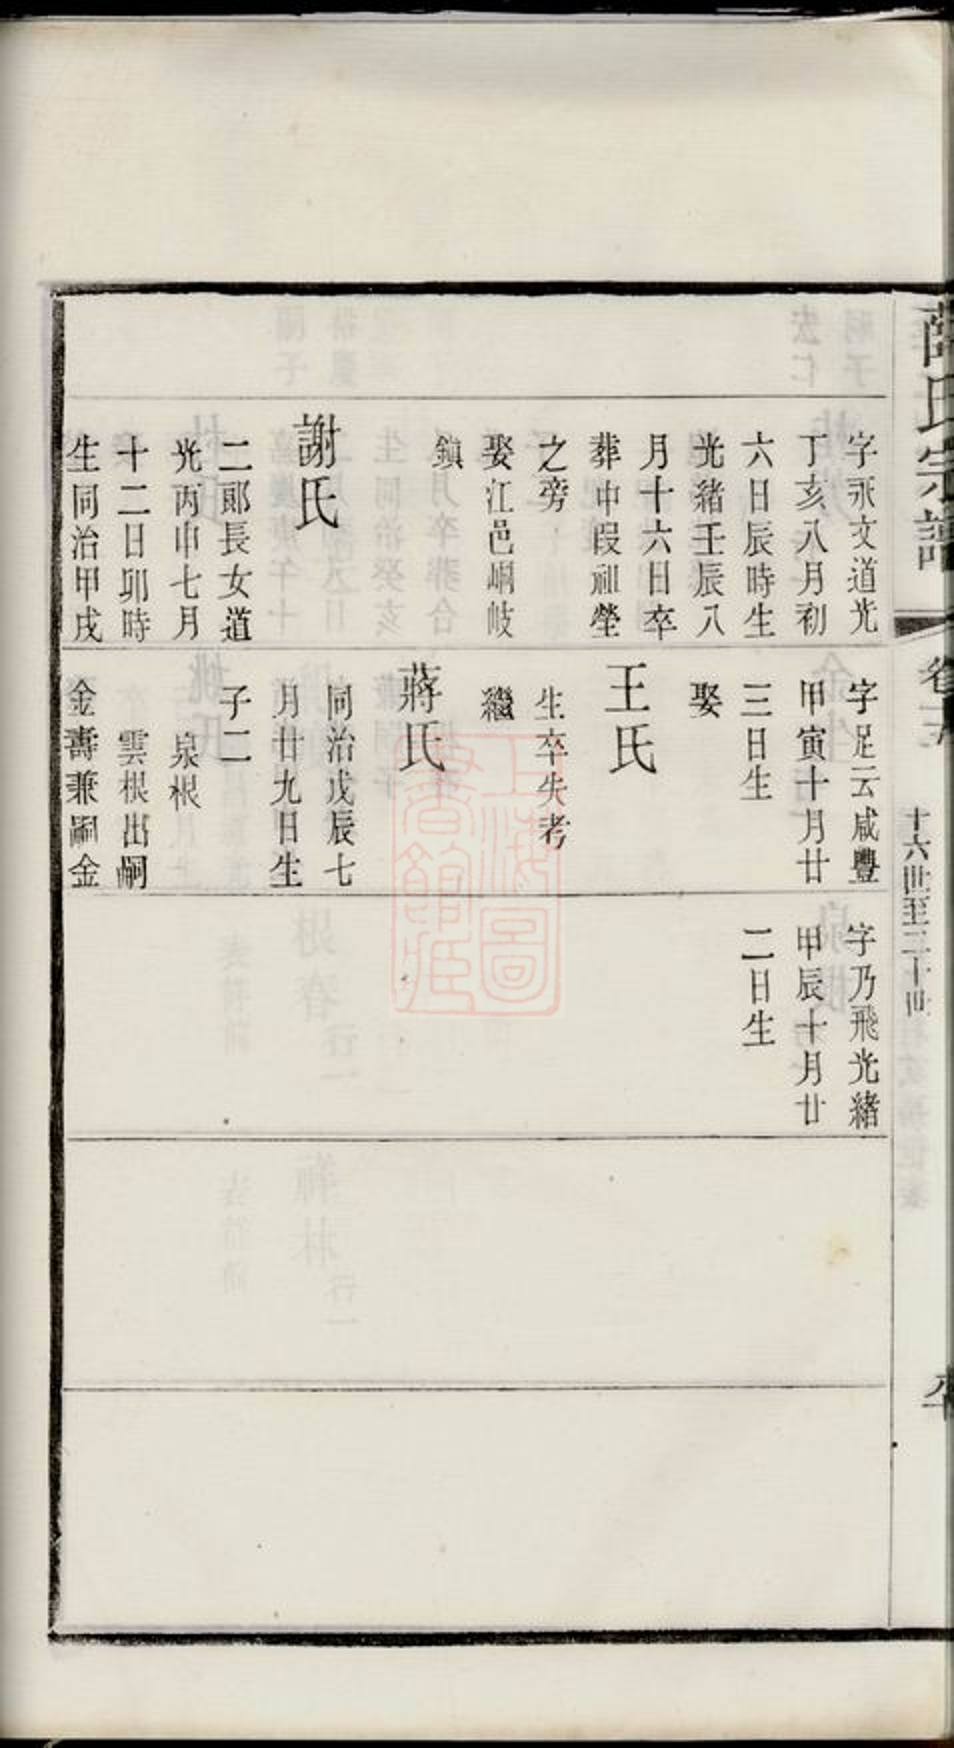 氏宗譜
十六世至二十世
字永文道光
丁亥八月初
六日辰時生
光緒壬辰八
月十六日卒
葬中叚祖塋
之旁
娶江邑峒岐
鎮
謝氏
二郞長女道
光丙申七月
十二日卯時
生同治甲戌
字足云咸豐
甲寅十月廿
三日生
娶
王氏
生卒失考
繼
蔣氏
同治戊辰七
月廿九日生
子二
泉根
雲根出嗣
金壽兼嗣金
字乃飛光緒
甲辰十月廿
二日生
上海圖
書館藏